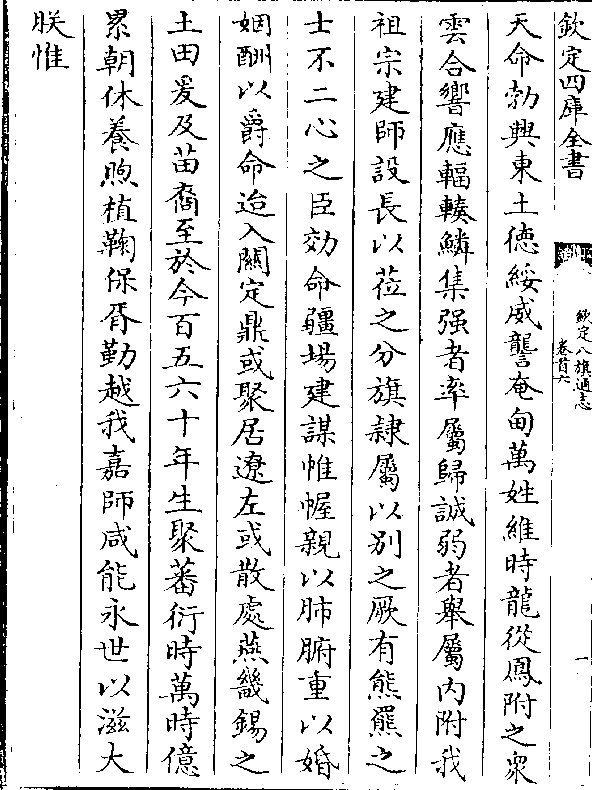 欽定四庫全書
欽定八旗通志
卷首六
一
天命勃興東土德綏威讋奄甸萬姓維時龍從鳳附之衆
雲合響應輻輳鱗集强者率屬歸誠弱者舉屬内附我
祖宗建師設長以莅之分旗隸屬以别之厥有熊羆之
士不二心之臣効命疆場建謀帷幄親以肺腑重以婚
姻酬以爵命迨入關定鼎或聚居遼左或散處燕畿錫之
土田爰及苗裔至於今百五六十年生聚蕃衍時萬時億
累朝休養煦植鞠保胥勤越我嘉師咸能永世以滋大
朕惟